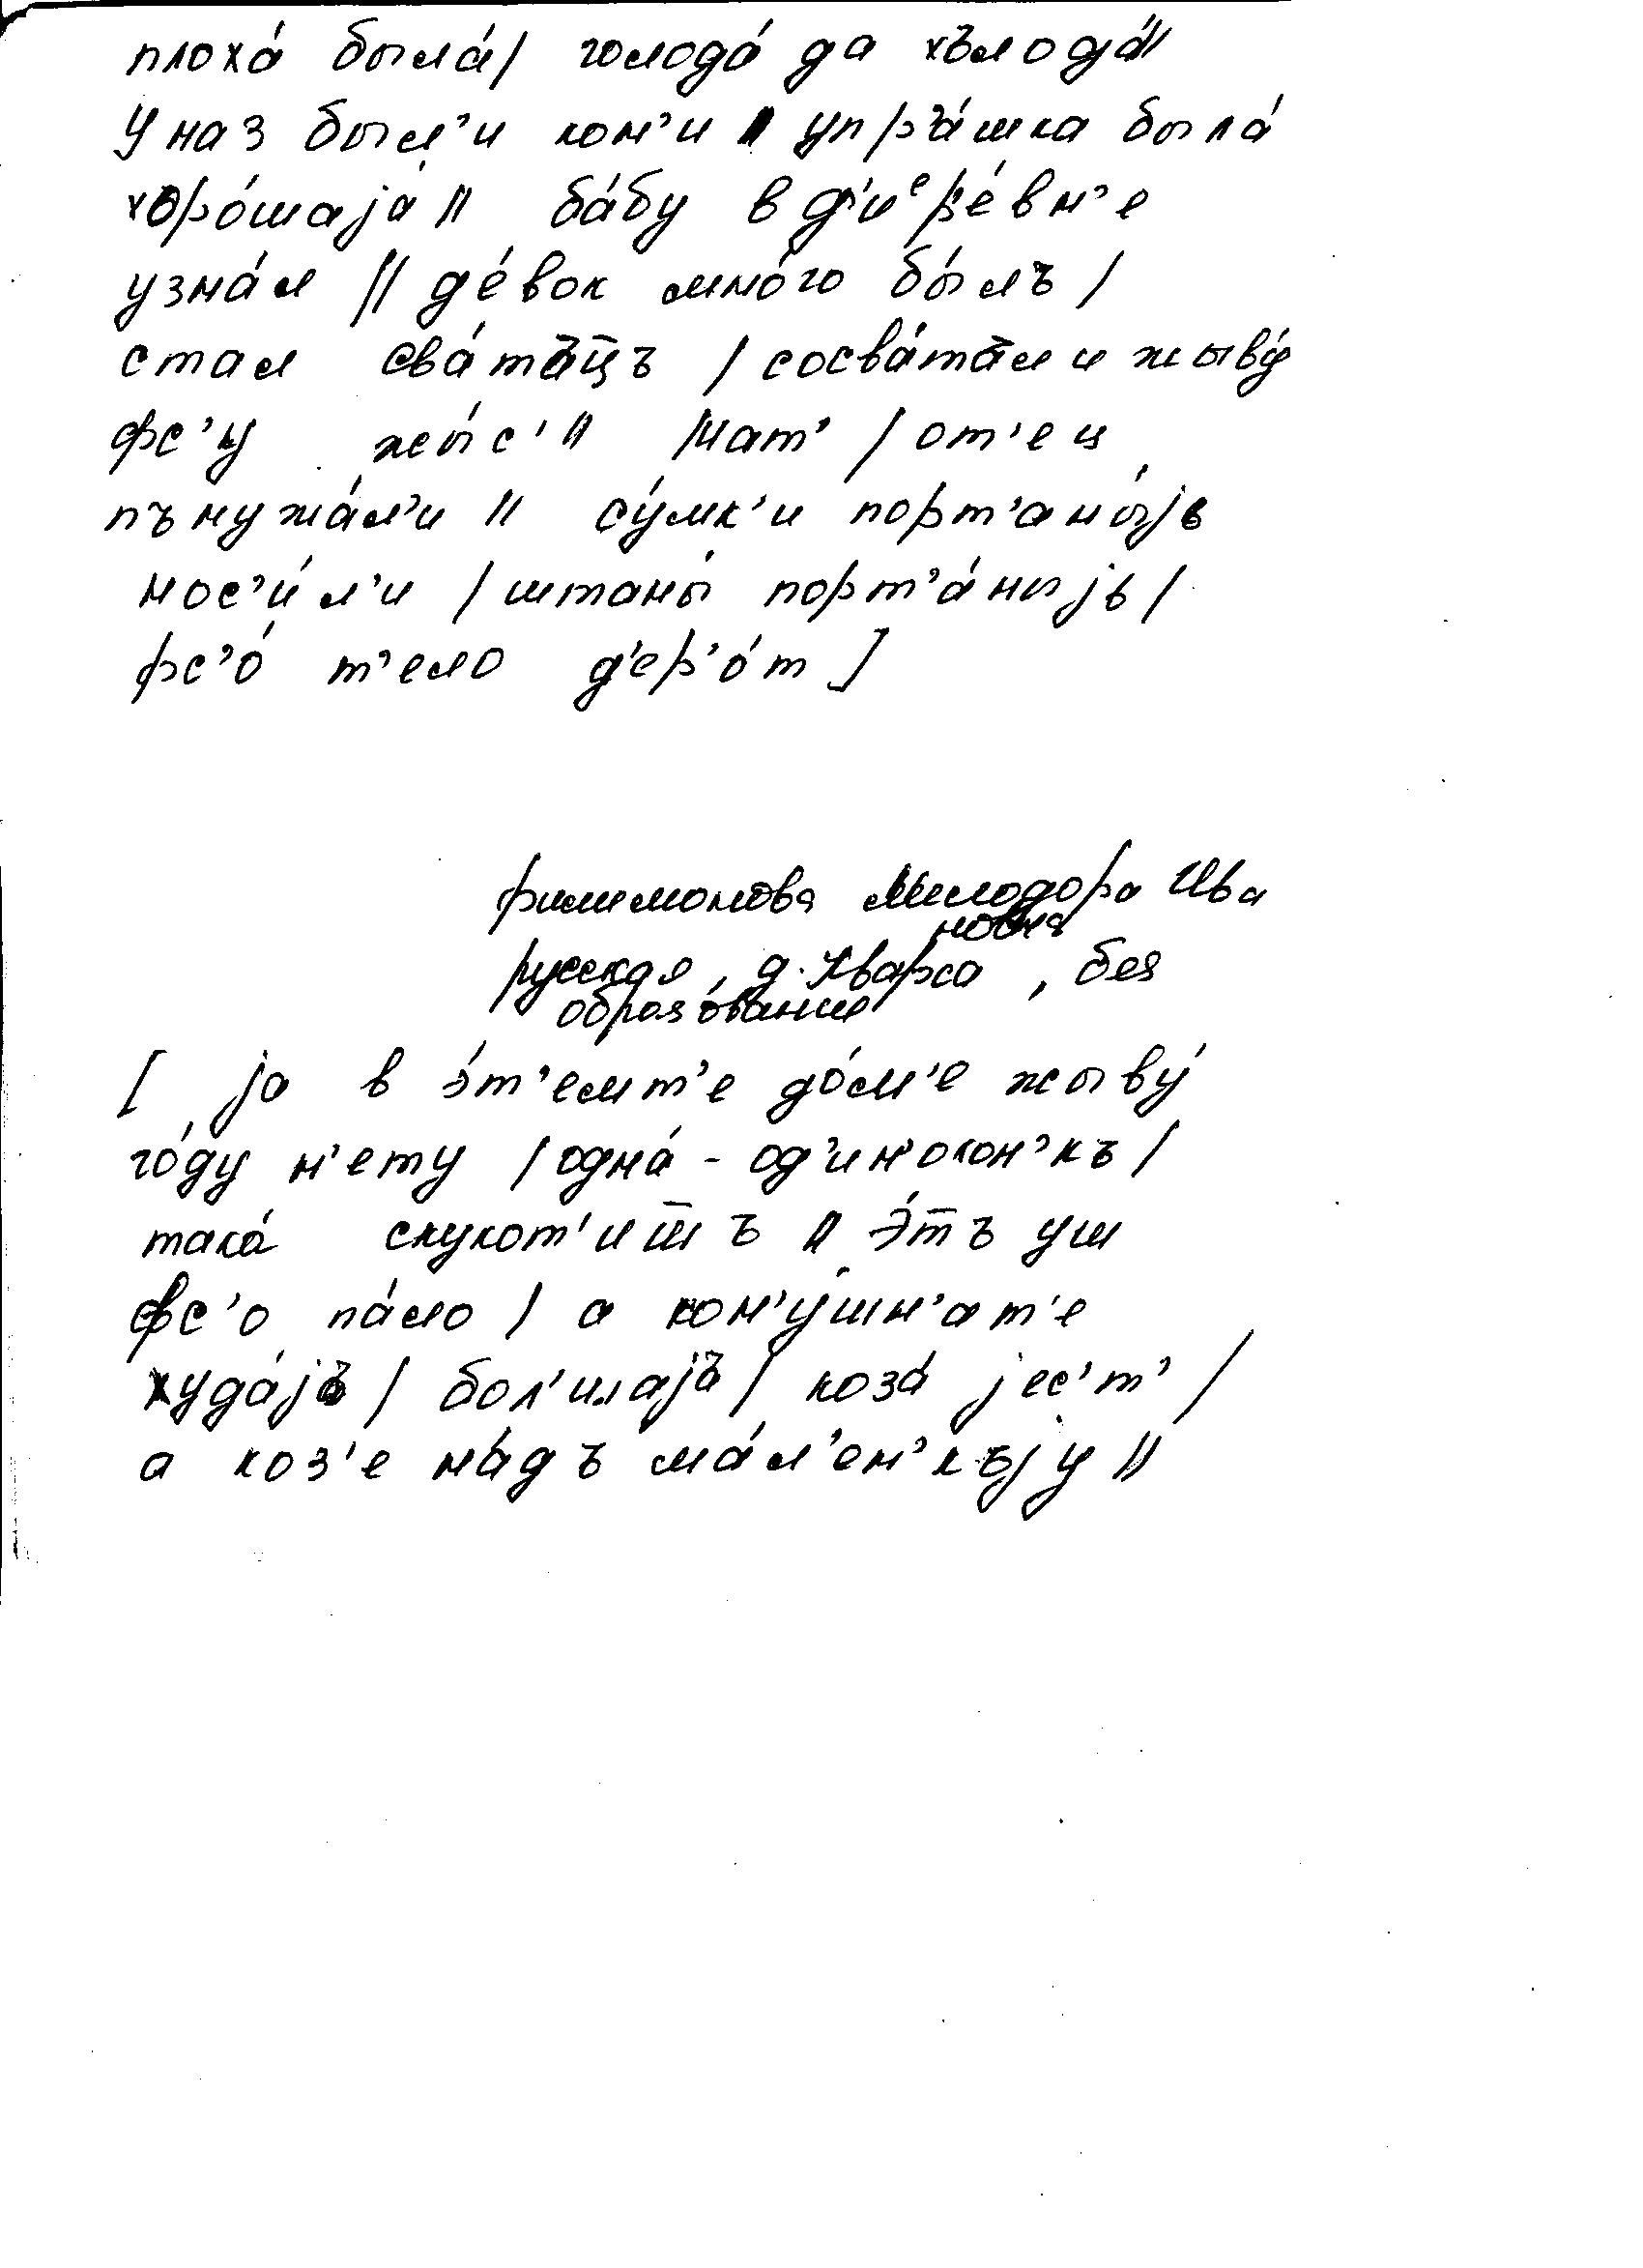 плоха́ была́/ голода́ да хълода́//
У наз был'и кон'и // упр'а́шка была́
хоро́шаjа // ба́бу в д'иᵉре́вн'е
узна́л // де́вок мно́го бы́лъ /
стал сва́тъц̅ъ / сосва́тал и жыву́
фс'у жы́с' // мат' / от'ец
пънужа́л'и // су́мк'и порт'аны́jь
нос'и́л'и / штаны́ порт'а́ныjь /
фс'о́ т'ело д'ер'о́т ]
Филимонова Милодора Ива
новна
русская, д. Кварса, без
образования
[ jа в э́т'емт'е до́м'е жыву́
го́ду н'ету / одна́ - од'ин'о́хон'къ /
така́ скукот'иш̅ъ // э́тъ уш
фс'о па́ло / а кон'у́шн'ат'е
худа́jъ / бол'шаjъ / коза́ jес'т' /
а коз'е на́дъ ма́л'ен'къjу //